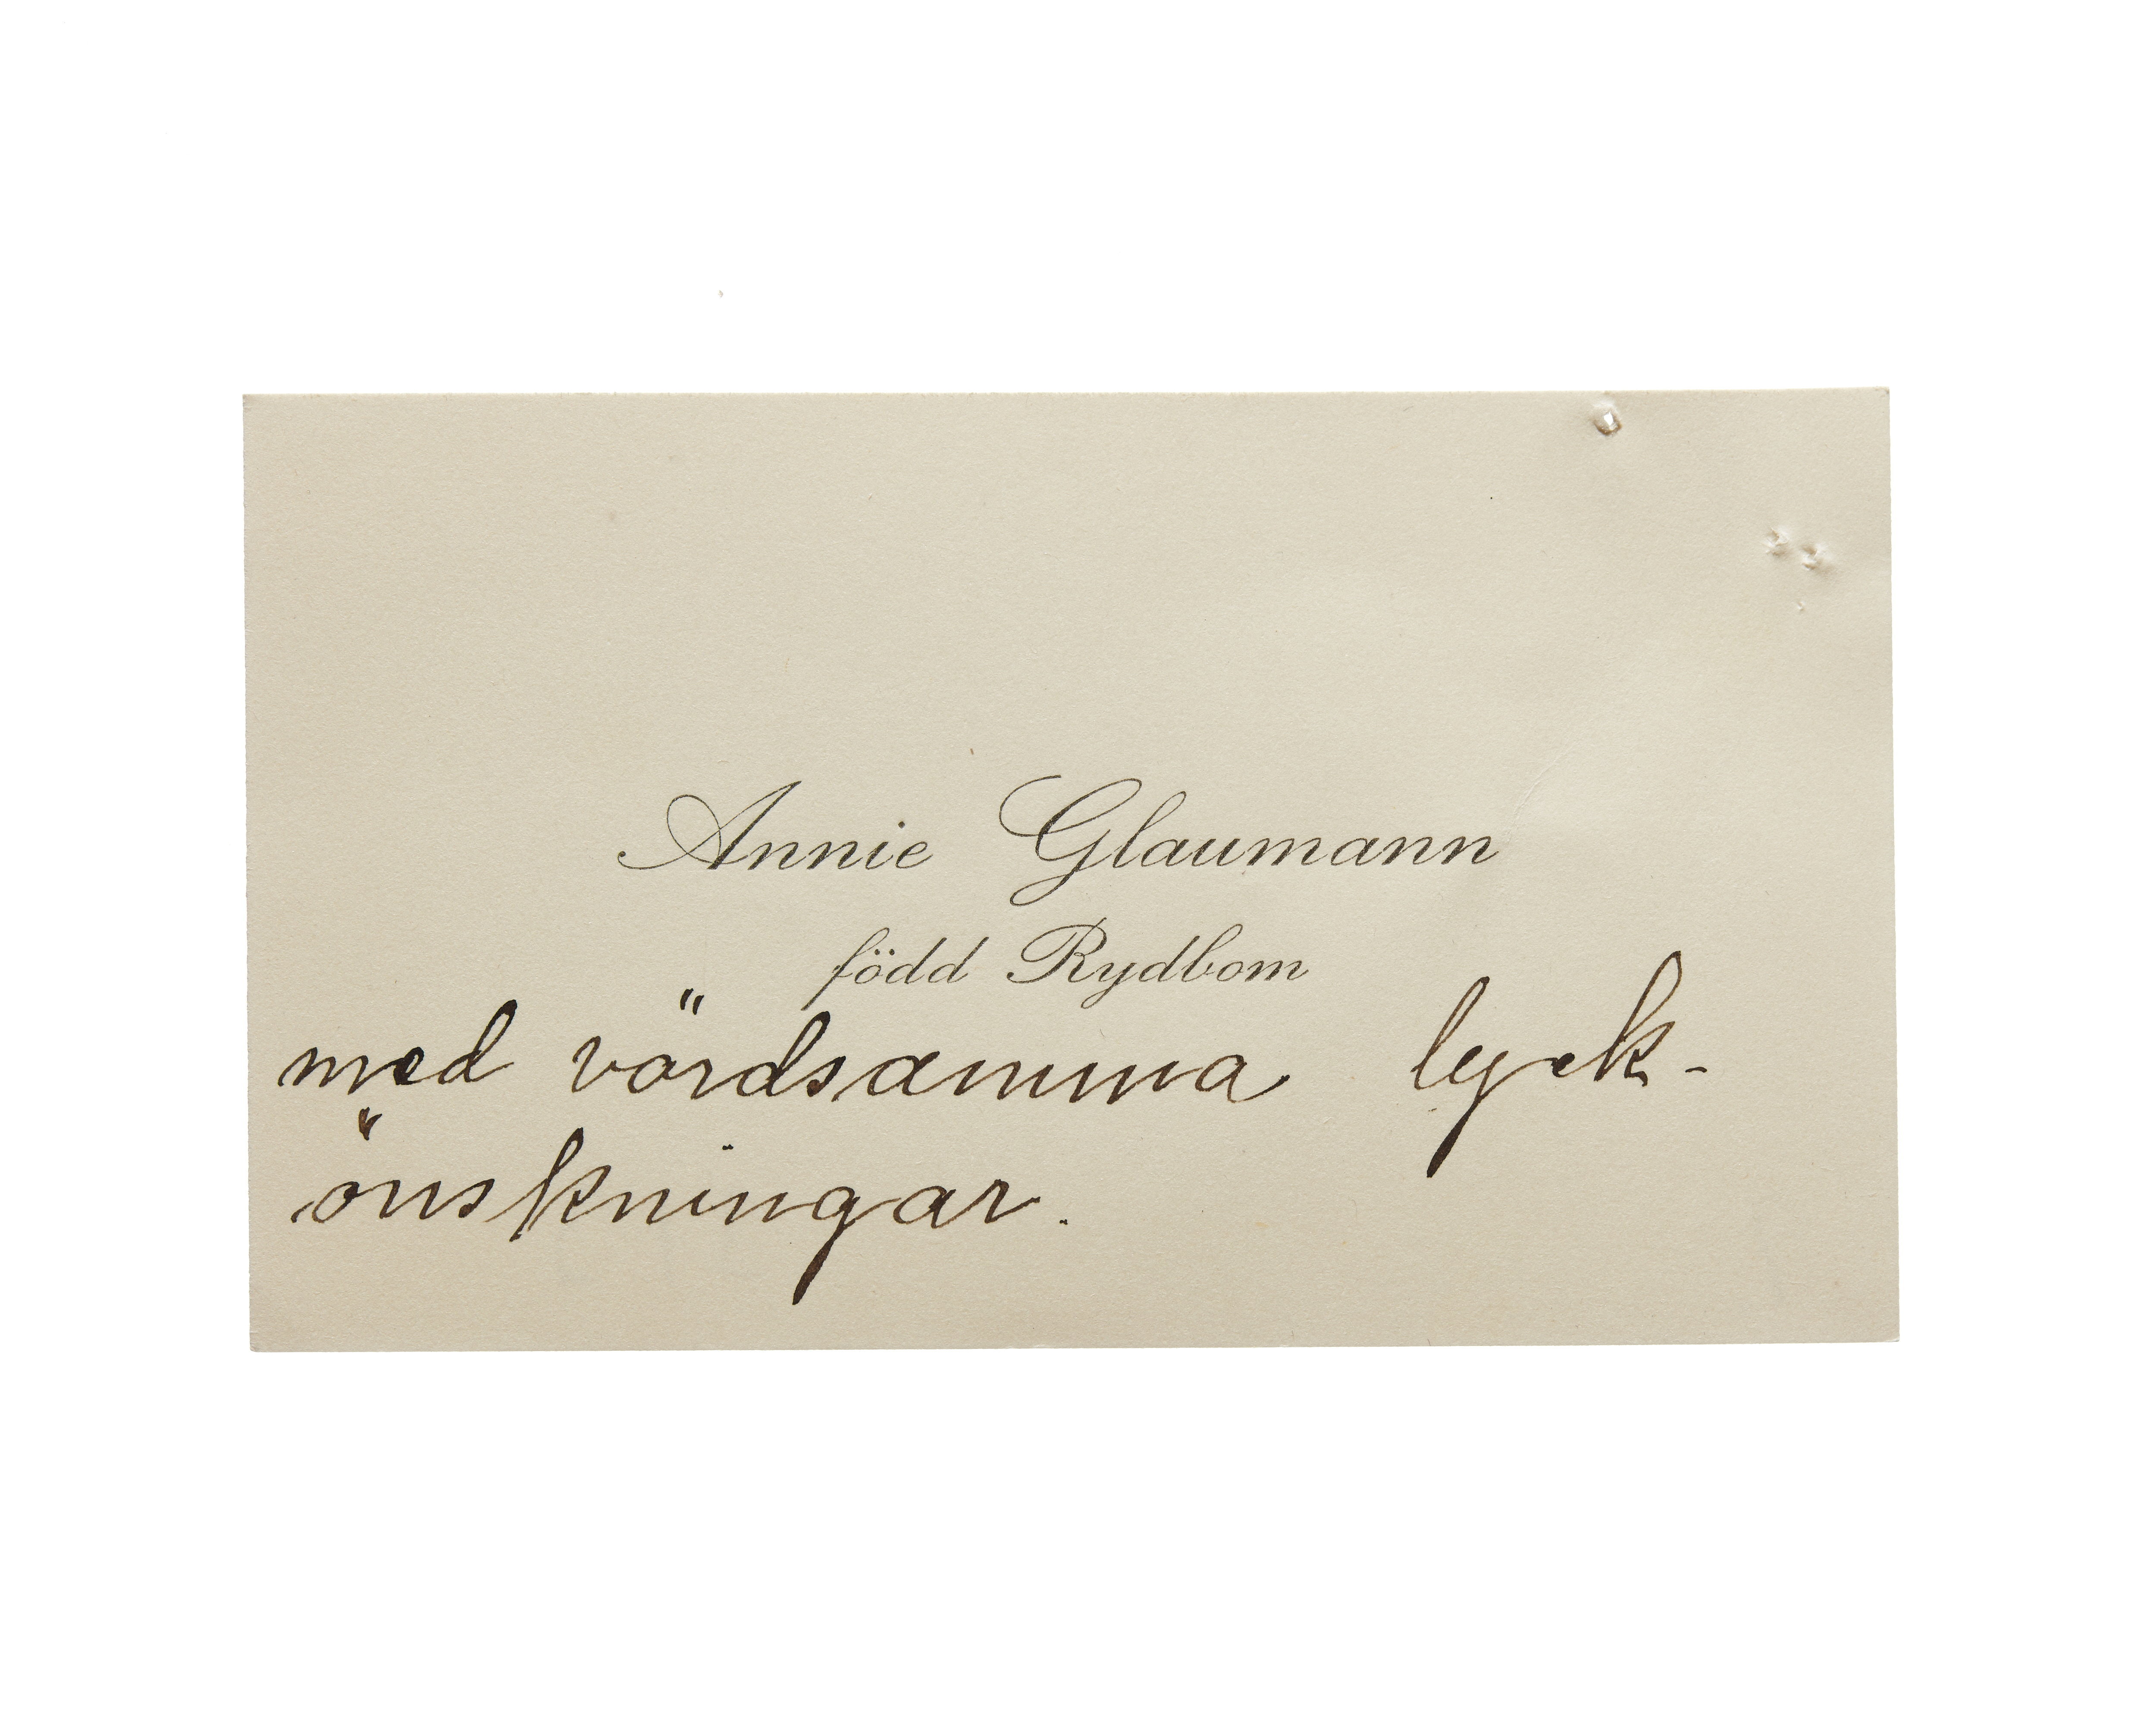 Annie Glaumann
född Rydbom
med vördsamma lyck-
önskningar.